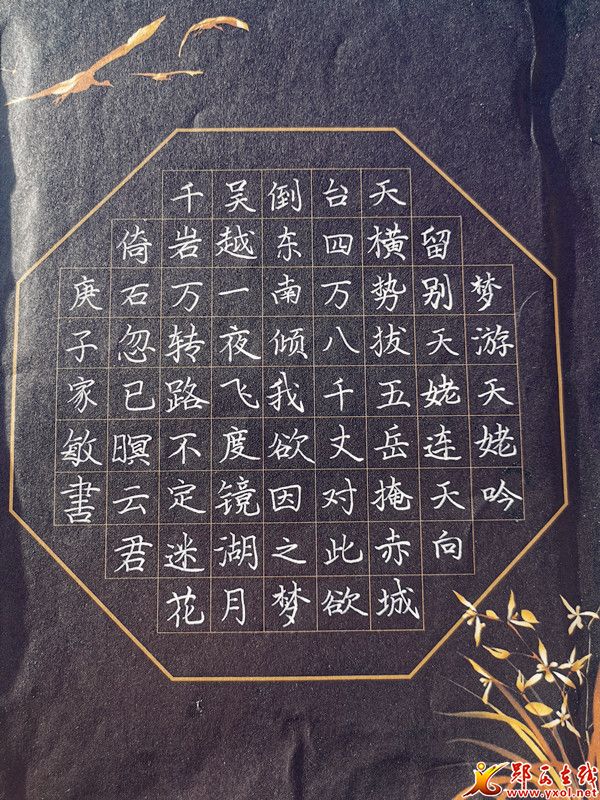 梦游天姥吟
留别天姥连天向
天横势拔五岳掩赤城
台四万八千丈对此欲
倒东南倾我欲因之梦
吴越一夜飞度镜湖月
千岩万转路不定迷花
倚石忽已暝云君
庚子家敏書
郧西在线
www.yxol.net